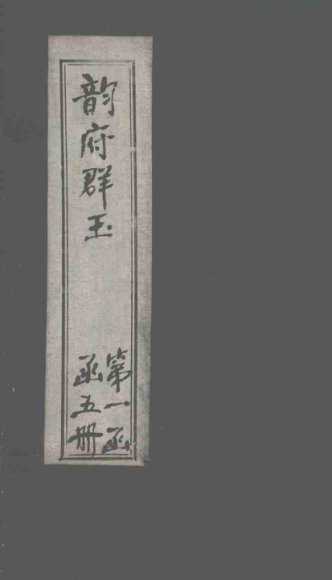 韵府群玉
第一函
函五册